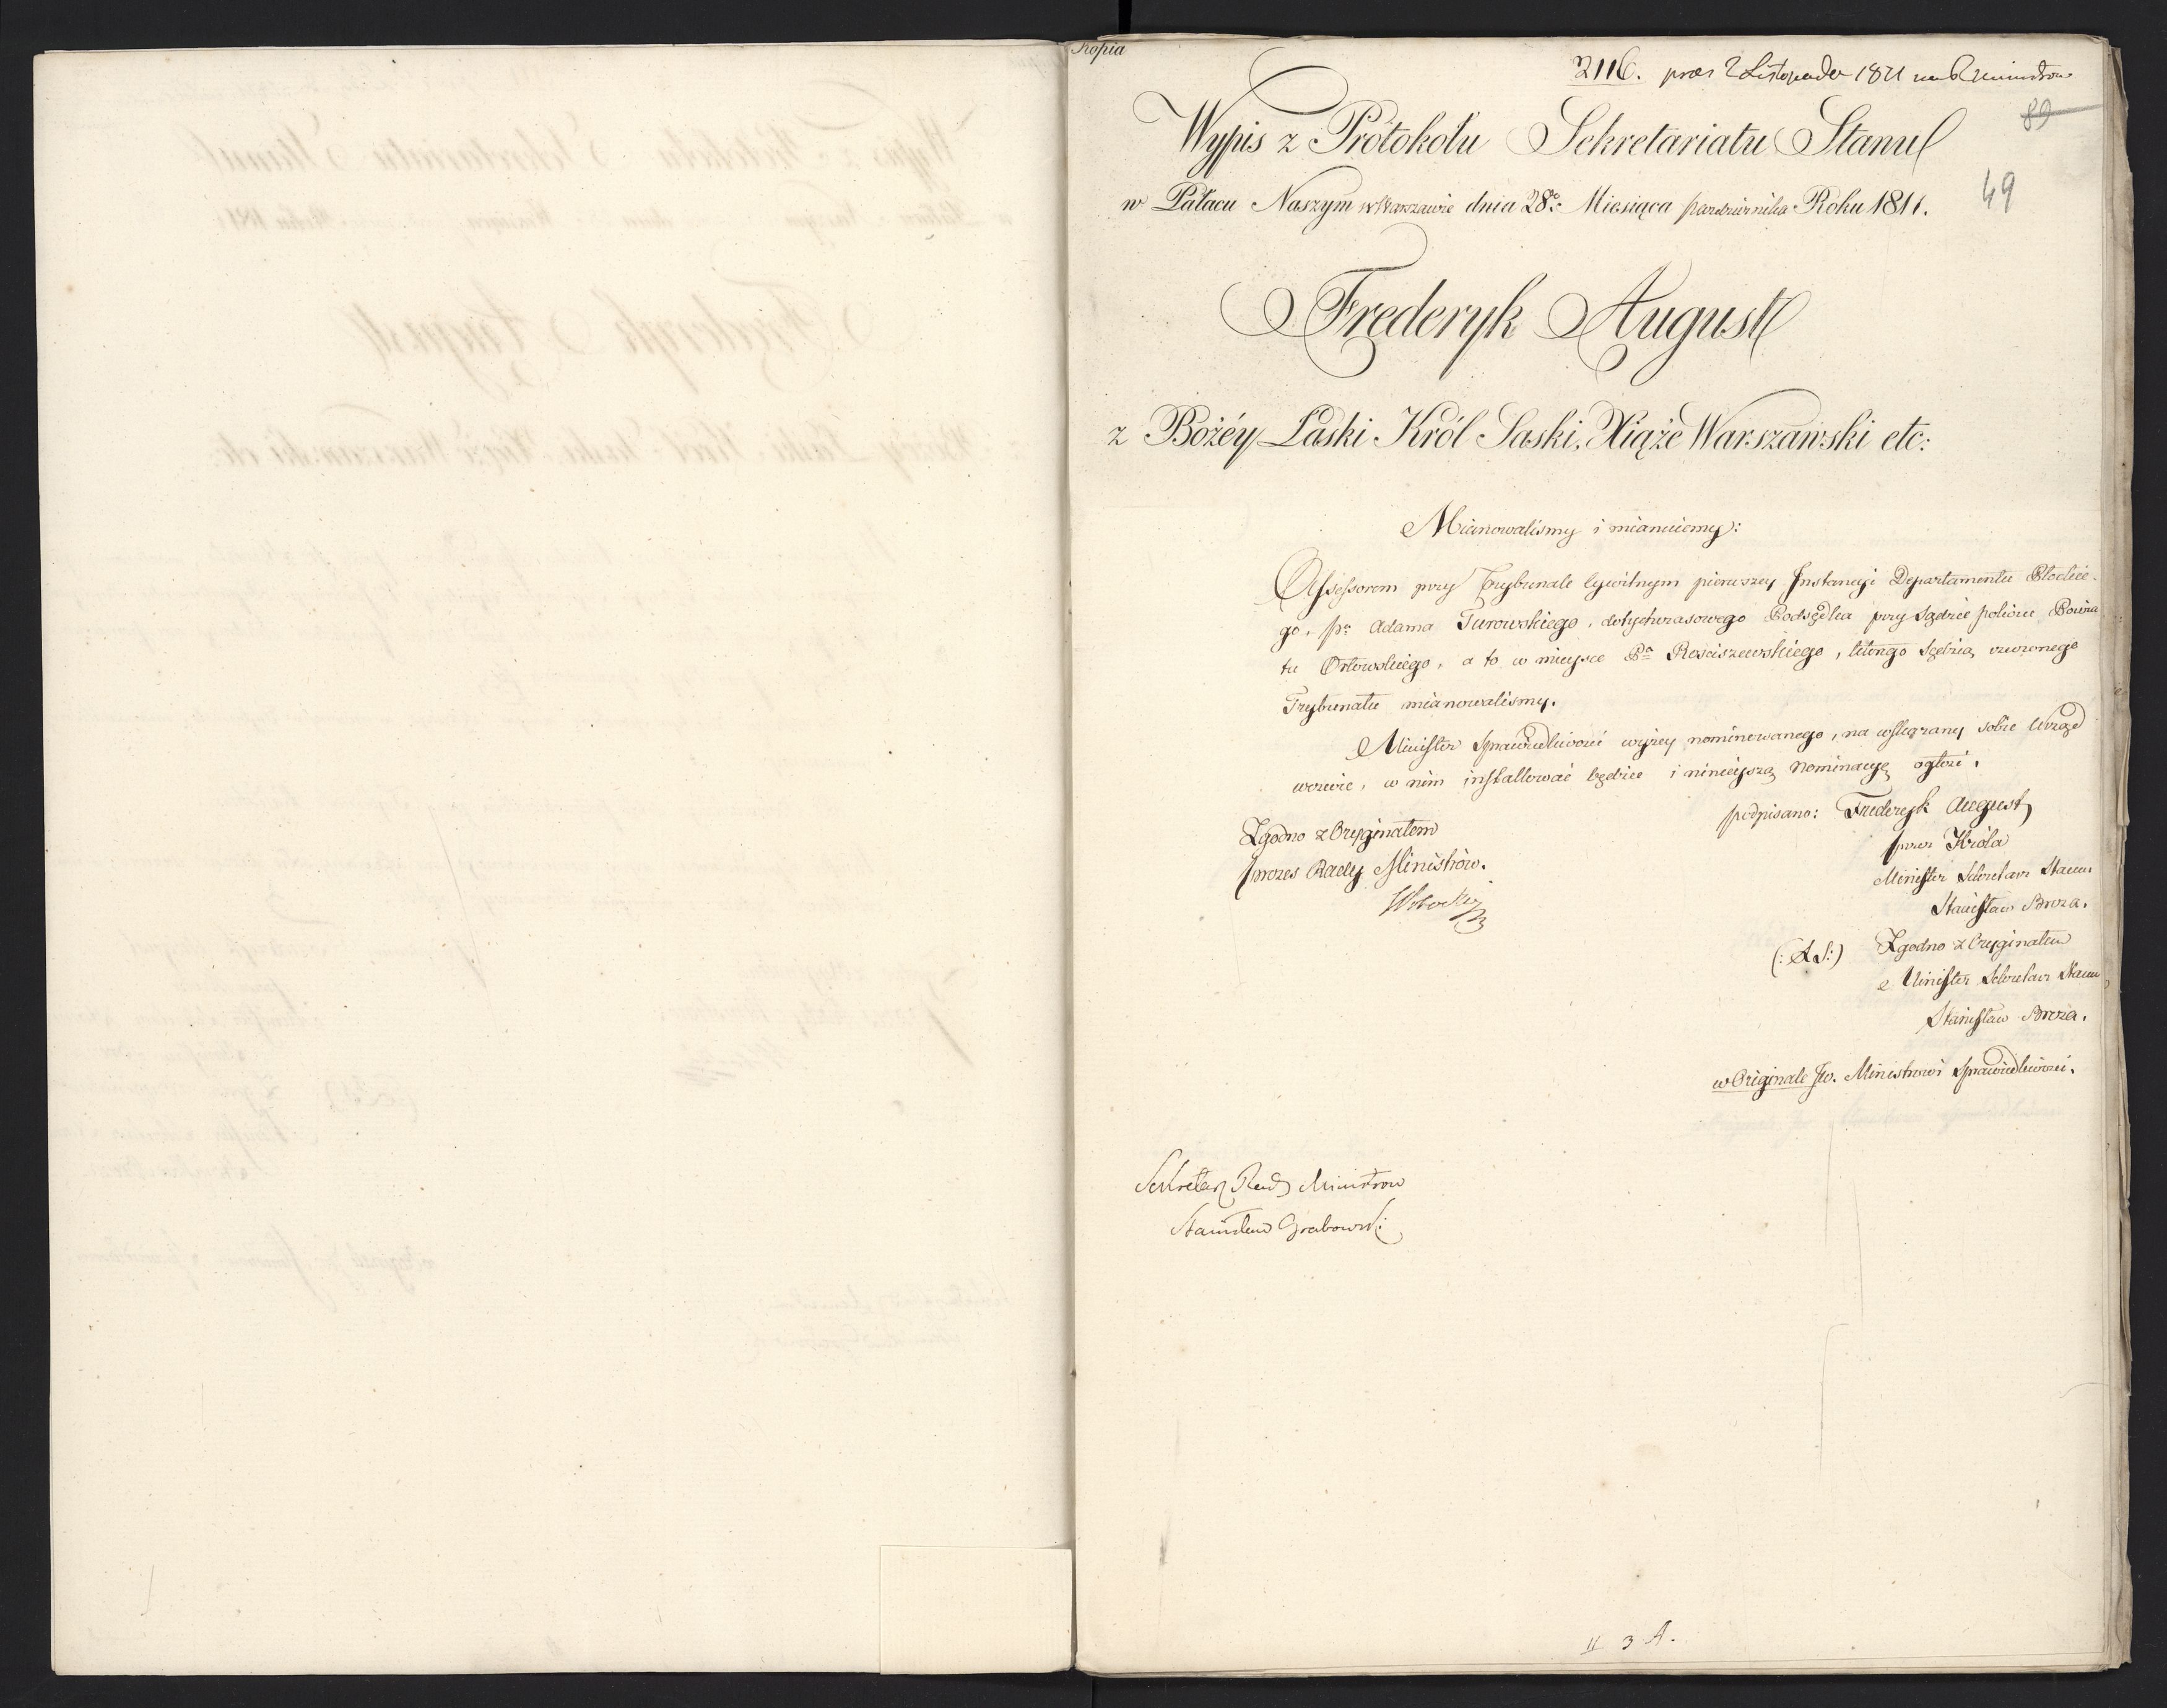 Kopia
2116. praes 2 Listopada 1811 na R Ministrow
89
Wypis z Protokołu Sekretariatu Stanu
49
w Pałacu Naszym w Warszawie dnia 28o: Miesiąca października Roku 1811.
Frederyk August
z Bożéy Łaski Król Saski, Xiąże Warszawski etc:
Mianowalismy i mianuiemy:
Assessorem przy Trybunale Cywilnym pierwszey Instancyi Departamentu Płockie-
go, Pa Adama Turowskiego, dotychczasowego Podsędka przy Sądzie pokoiu Powia
tu Orłowskiego, a to w mieysce Pa Rościszewskiego, którego Sędzią rzeczonego
Trybunału mianowalismy.
Minister Sprawiedliwości wyżey nominowanego, na wskazany sobie Urząd
wezwie, w nim installować będzie i ninieyszą Nominacyę ogłosi.
podpisano: Frederyk August
przez Króla
Minister Sekretarz Stanu
Stanisław Breza.
Zgodno z Oryginałem
Prezes Rady Ministrów.
(: L.S:) Zgodno z Oryginałem
Minister Sekretarz Stanu
Stanisław Breza.
w Originale JW. Ministrowi Sprawiedliwości.
Sekretarz Rady Ministrow
Stanisław Grabowski
II 3 A.